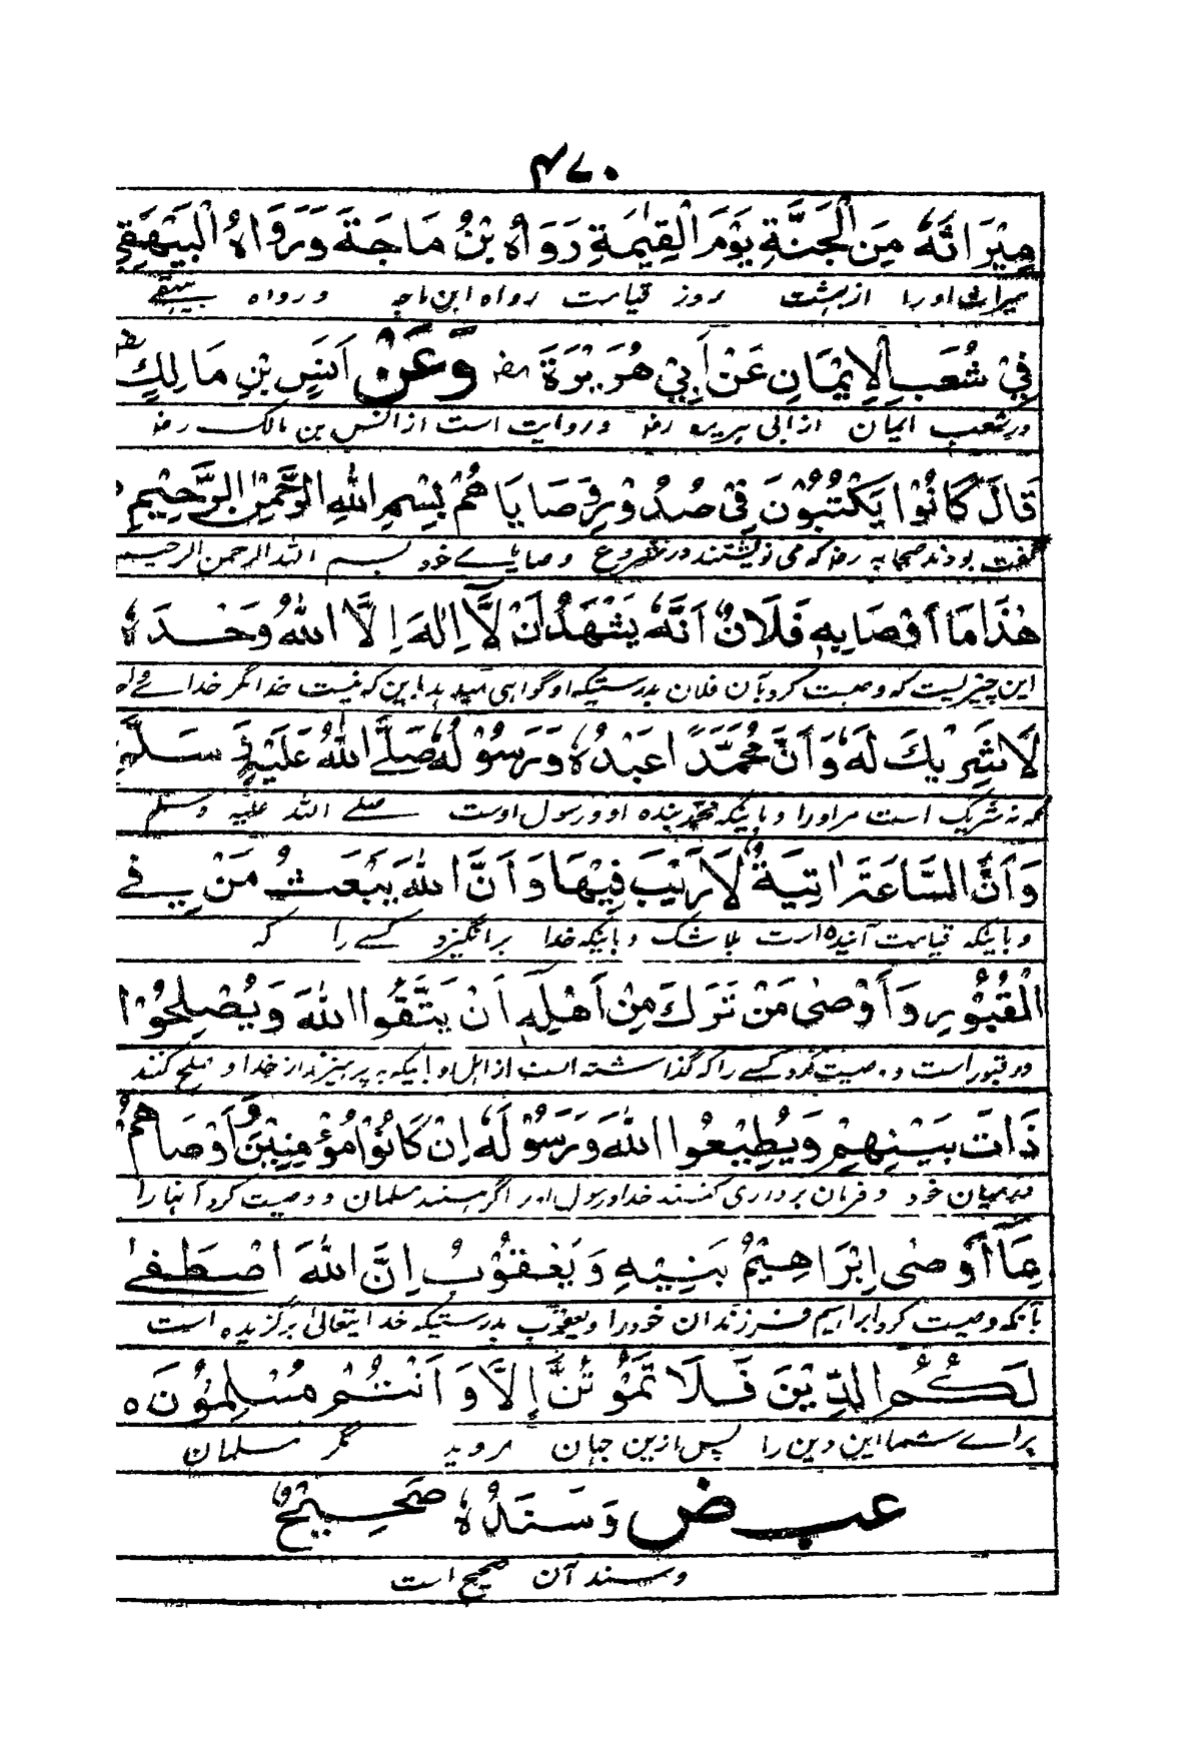 ۴۷۰
مِيْرَاثَهٗ مِنَ الْجَنَّةِ يَوْمَ الْقِيٰمَةِ رَوَاهُ بْنُ مَاجَةَ وَرَوَاهُ الْبَيْهَقِي
میراث اورا از بهشت بروز قیامت رواه ابن ماجه ورواه بیهقے
فِيْ شُعَبِ الْاِيْمَانِ عَنْ اَبِيْ هُرَيْرَةَ رضـ وَعَنْ اَنَسِ بْنِ مَالِكٍ رضـ
در شعب ایمان از ابی هریره رضـ وروایت است از انس بن مالک رضـ
قَالَ كَانُوْا يَكْتُبُوْنَ فِيْ صُدُوْرِ وَصَايَاهُمْ بِسْمِ اللهِ الرَّحْمٰنِ الرَّحِيْمِ
گفت بودند صحابه رضـ که می نوشتند در شروع وصایاے خود بسم الله الرحمن الرحیم
هٰذَا مَا اَوْصٰى بِهٖ فَلَانٌ اَنَّهٗ يَشْهَدُ اَنْ لَّا اِلٰهَ اِلَّا اللهُ وَحْدَهٗ
این چیزیست که وصیت کرد بآن فلان بدرستیکه او گواهی میدهد باین که نیست خدا مگر خداے
لَا شَرِيْكَ لَهٗ وَاَنَّ مُحَمَّدًا عَبْدُهٗ وَرَسُوْلُهٗ صَلَّى اللهُ عَلَيْهِ وَسَلَّمَ
که نه شریک است مر او را و باینکه محمد بنده او ورسول اوست صلے الله علیه وسلم
وَاَنَّ السَّاعَةَ اٰتِيَةٌ لَا رَيْبَ فِيْهَا وَاَنَّ اللهَ يَبْعَثُ مَنْ فِے
و باینکه قیامت آینده است بلا شک و باینکه خدا برانگیزد کسے را که
الْقُبُوْرِ وَاَوْصٰى مَنْ تَرَكَ مِنْ اَهْلِهٖ اَنْ يَتَّقُوا اللهَ وَيُصْلِحُوْا
در قبور است و وصیت کرد کسے را که گذاشته است از اهل او باینکه به پرهیزند از خدا و صلح کنند
ذَاتَ بَيْنِهِمْ وَيُطِيْعُوا اللهَ وَرَسُوْلَهٗ اِنْ كَانُوْا مُؤْمِنِيْنَ وَاَوْصَاهُمْ
درمیان خود و فرمان برداری کنند خدا ورسول او را اگر هستند مسلمان و وصیت کرد آنها را
بِمَا اَوْصٰى اِبْرَاهِيْمُ بَنِيْهِ وَيَعْقُوْبُ اِنَّ اللهَ اصْطَفٰے
بآنکه وصیت کرد ابراهیم فرزندان خود را ویعقوب بدرستیکه خدا ایتعالیٰ برگزیده است
لَكُمُ الدِّيْنَ فَلَا تَمُوْتُنَّ اِلَّا وَاَنْتُمْ مُسْلِمُوْنَ ه
براے شما این دین را پس ازین جهان مروید مگر مسلمان
عب ض وَسَنَدُهٗ صَحِيْحٌ
وسند آن صحیح است